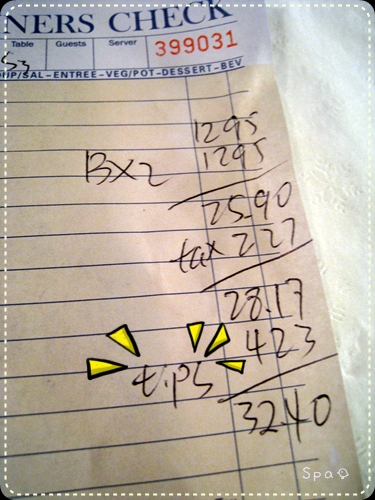 NERS CHECK
Table Guests Server 399031
53
OUP/SAL-ENTREE-VEG/POT-DESSERT-BEV
1295
Bx2 1295
25.90
tax 227
28.17
tips 423
32.40
Spa